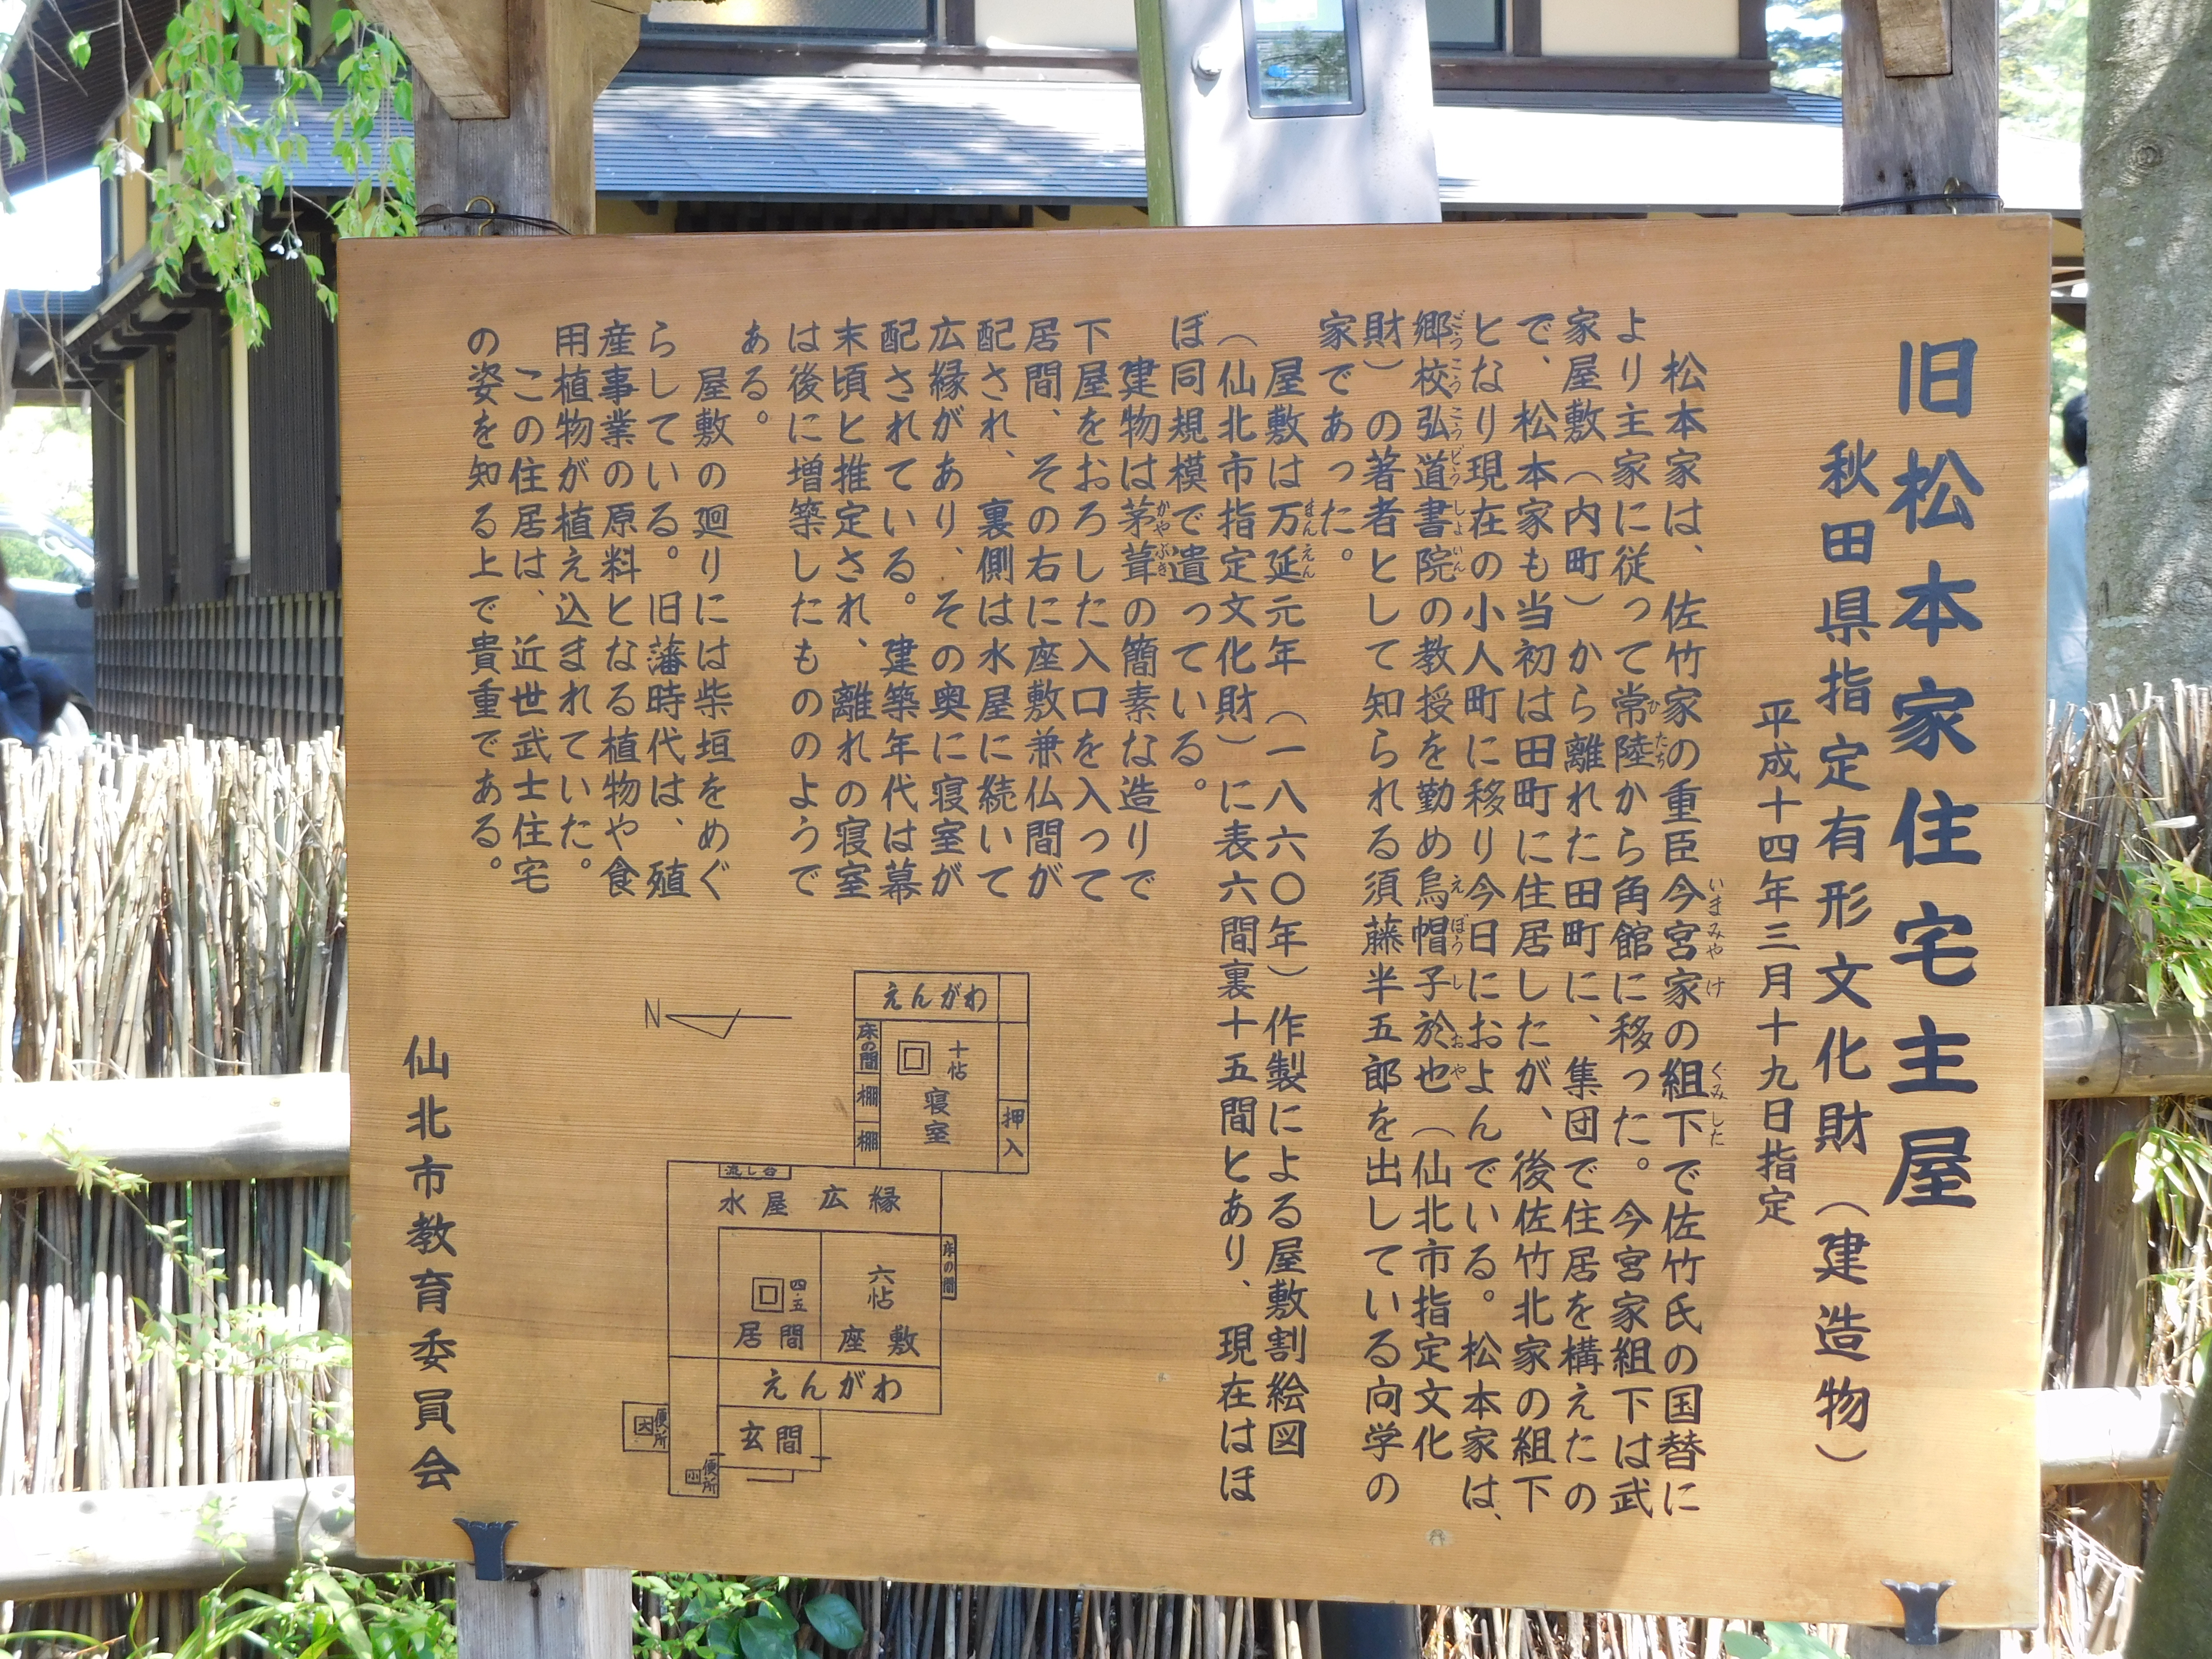 旧松本家住宅主屋
秋田県指定有形文化財（建造物）
平成十四年三月十九日指定
松本家は、佐竹家の重臣今宮家の組下で佐竹氏の国替に
いまみやけ
くみした
より主家に従って常陸から角館に移った。今宮家組下は武
ひたち
家屋敷（内町）から離れた田町に、集団で住居を構えたの
で、松本家も当初は田町に住居したが、後佐竹北家の組下
となり現在の小人町に移り今日におよんでいる。松本家は、
郷校弘道書院の教授を勤め烏帽子於也（仙北市指定文化
ごうこうこうどうしょいん
えぼうしおや
財）の著者として知られる須藤半五郎を出している向学の
家であった。
屋敷は万延元年（一八六〇年）作製による屋敷割絵図
まんえん
（仙北市指定文化財）に表六間裏十五間とあり、現在はほ
ぼ同規模で遺っている。
建物は茅葺の簡素な造りで
かやぶき
下屋をおろした入口を入って
居間、その右に座敷兼仏間が
配され、裏側は水屋に続いて
広縁があり、その奥に寝室が
配されている。建築年代は幕
末頃と推定され、離れの寝室
は後に増築したもののようで
ある。
屋敷の廻りには柴垣をめぐ
らしている。旧藩時代は、殖
産事業の原料となる植物や食
用植物が植え込まれていた。
この住居は、近世武士住宅
の姿を知る上で貴重である。
仙北市教育委員会
N
えんがわ
床の間
棚
棚
十帖
寝室
押入
流し台
水屋
広縁
床の間
四、五
居間
六帖
座敷
えんがわ
玄関
便所
大
便所
小